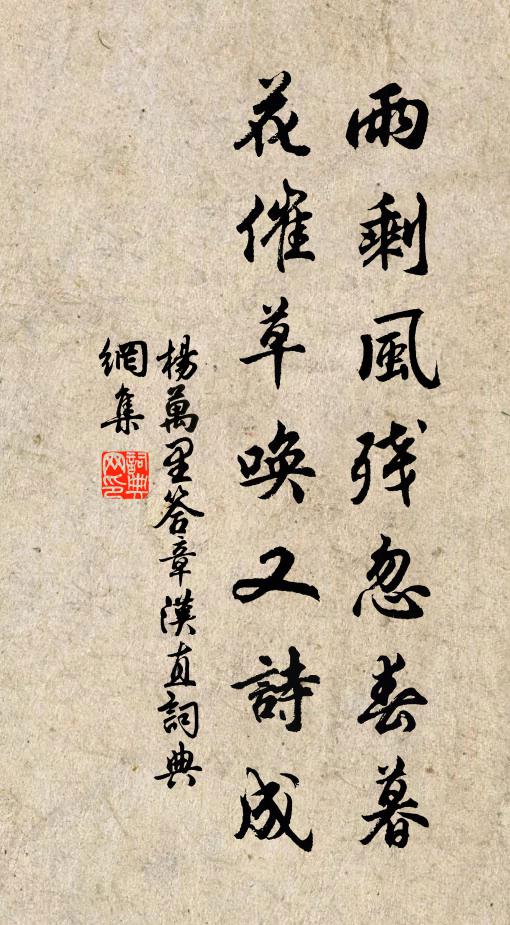 雨剩風殘忽春暮
花催草喚又詩成
楊萬里答章漢直詞典
網集
詞典
网印